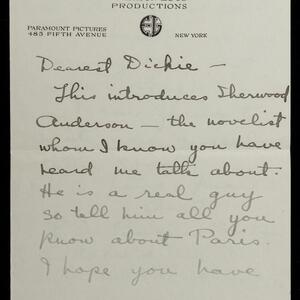 PRODUCTIONS
PARAMOUNT PICTURES
485 FIFTH AVENUE
NEW YORK
Dearest Dickie –
This introduces Sherwood
Anderson – the novelist
whom I know you have
heard me talk about.
He is a real guy
so tell him all you
know about Paris.
I hope you have